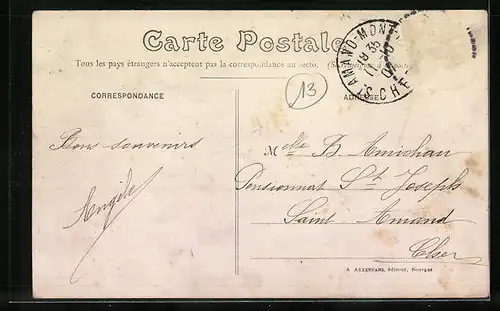 Carte Postale
Tous les pays étrangers n'acceptent pas la correspondance au recto.
CORRESPONDANCE
ADRESSE
13
ST AMAND-MONT
CHER
Bons souvenirs
Angèle
Melle B. Amichau
Pensionnat St Joseph
Saint Amand
Cher
A. AUXENFANS, éditeur, Bourges